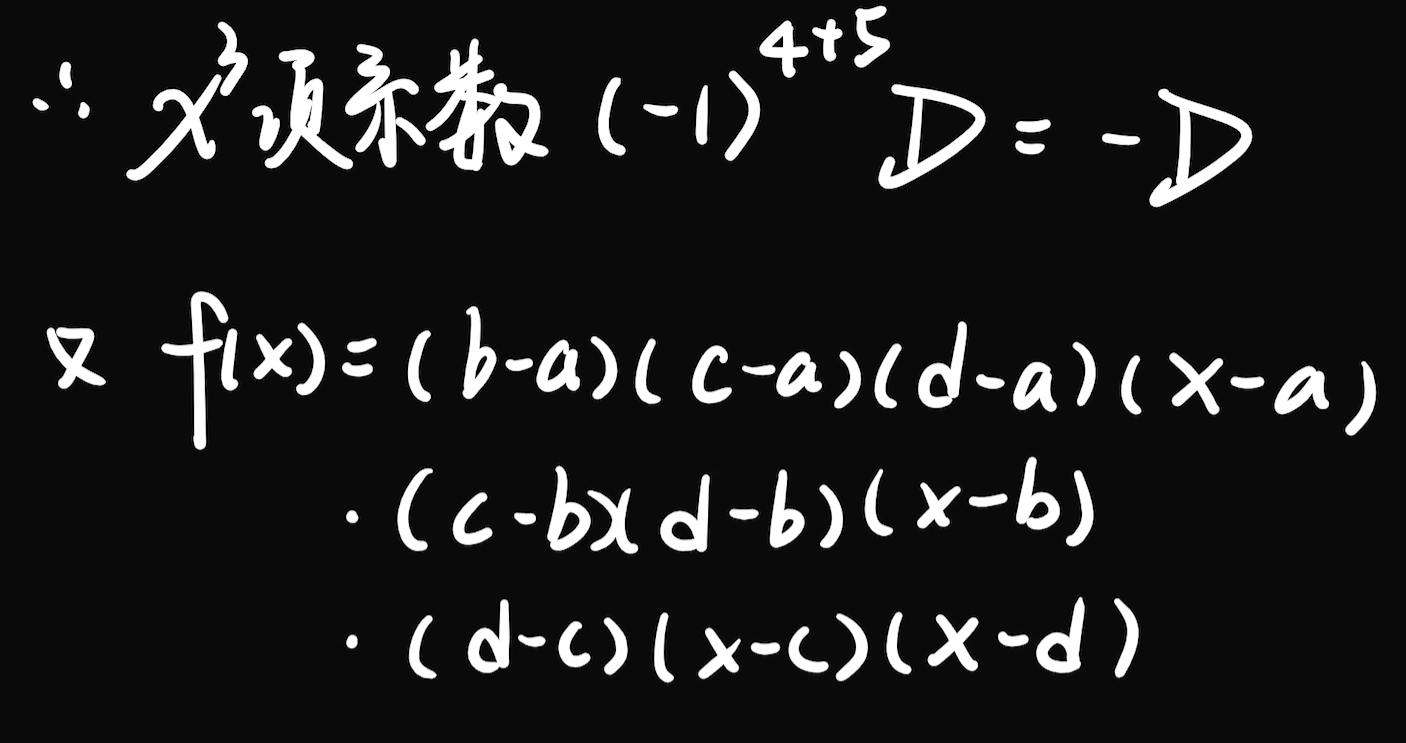 ∴ x³项系数 (-1)⁴⁺⁵ D = -D
又 f(x) = (b-a)(c-a)(d-a)(x-a)
· (c-b)(d-b)(x-b)
· (d-c)(x-c)(x-d)